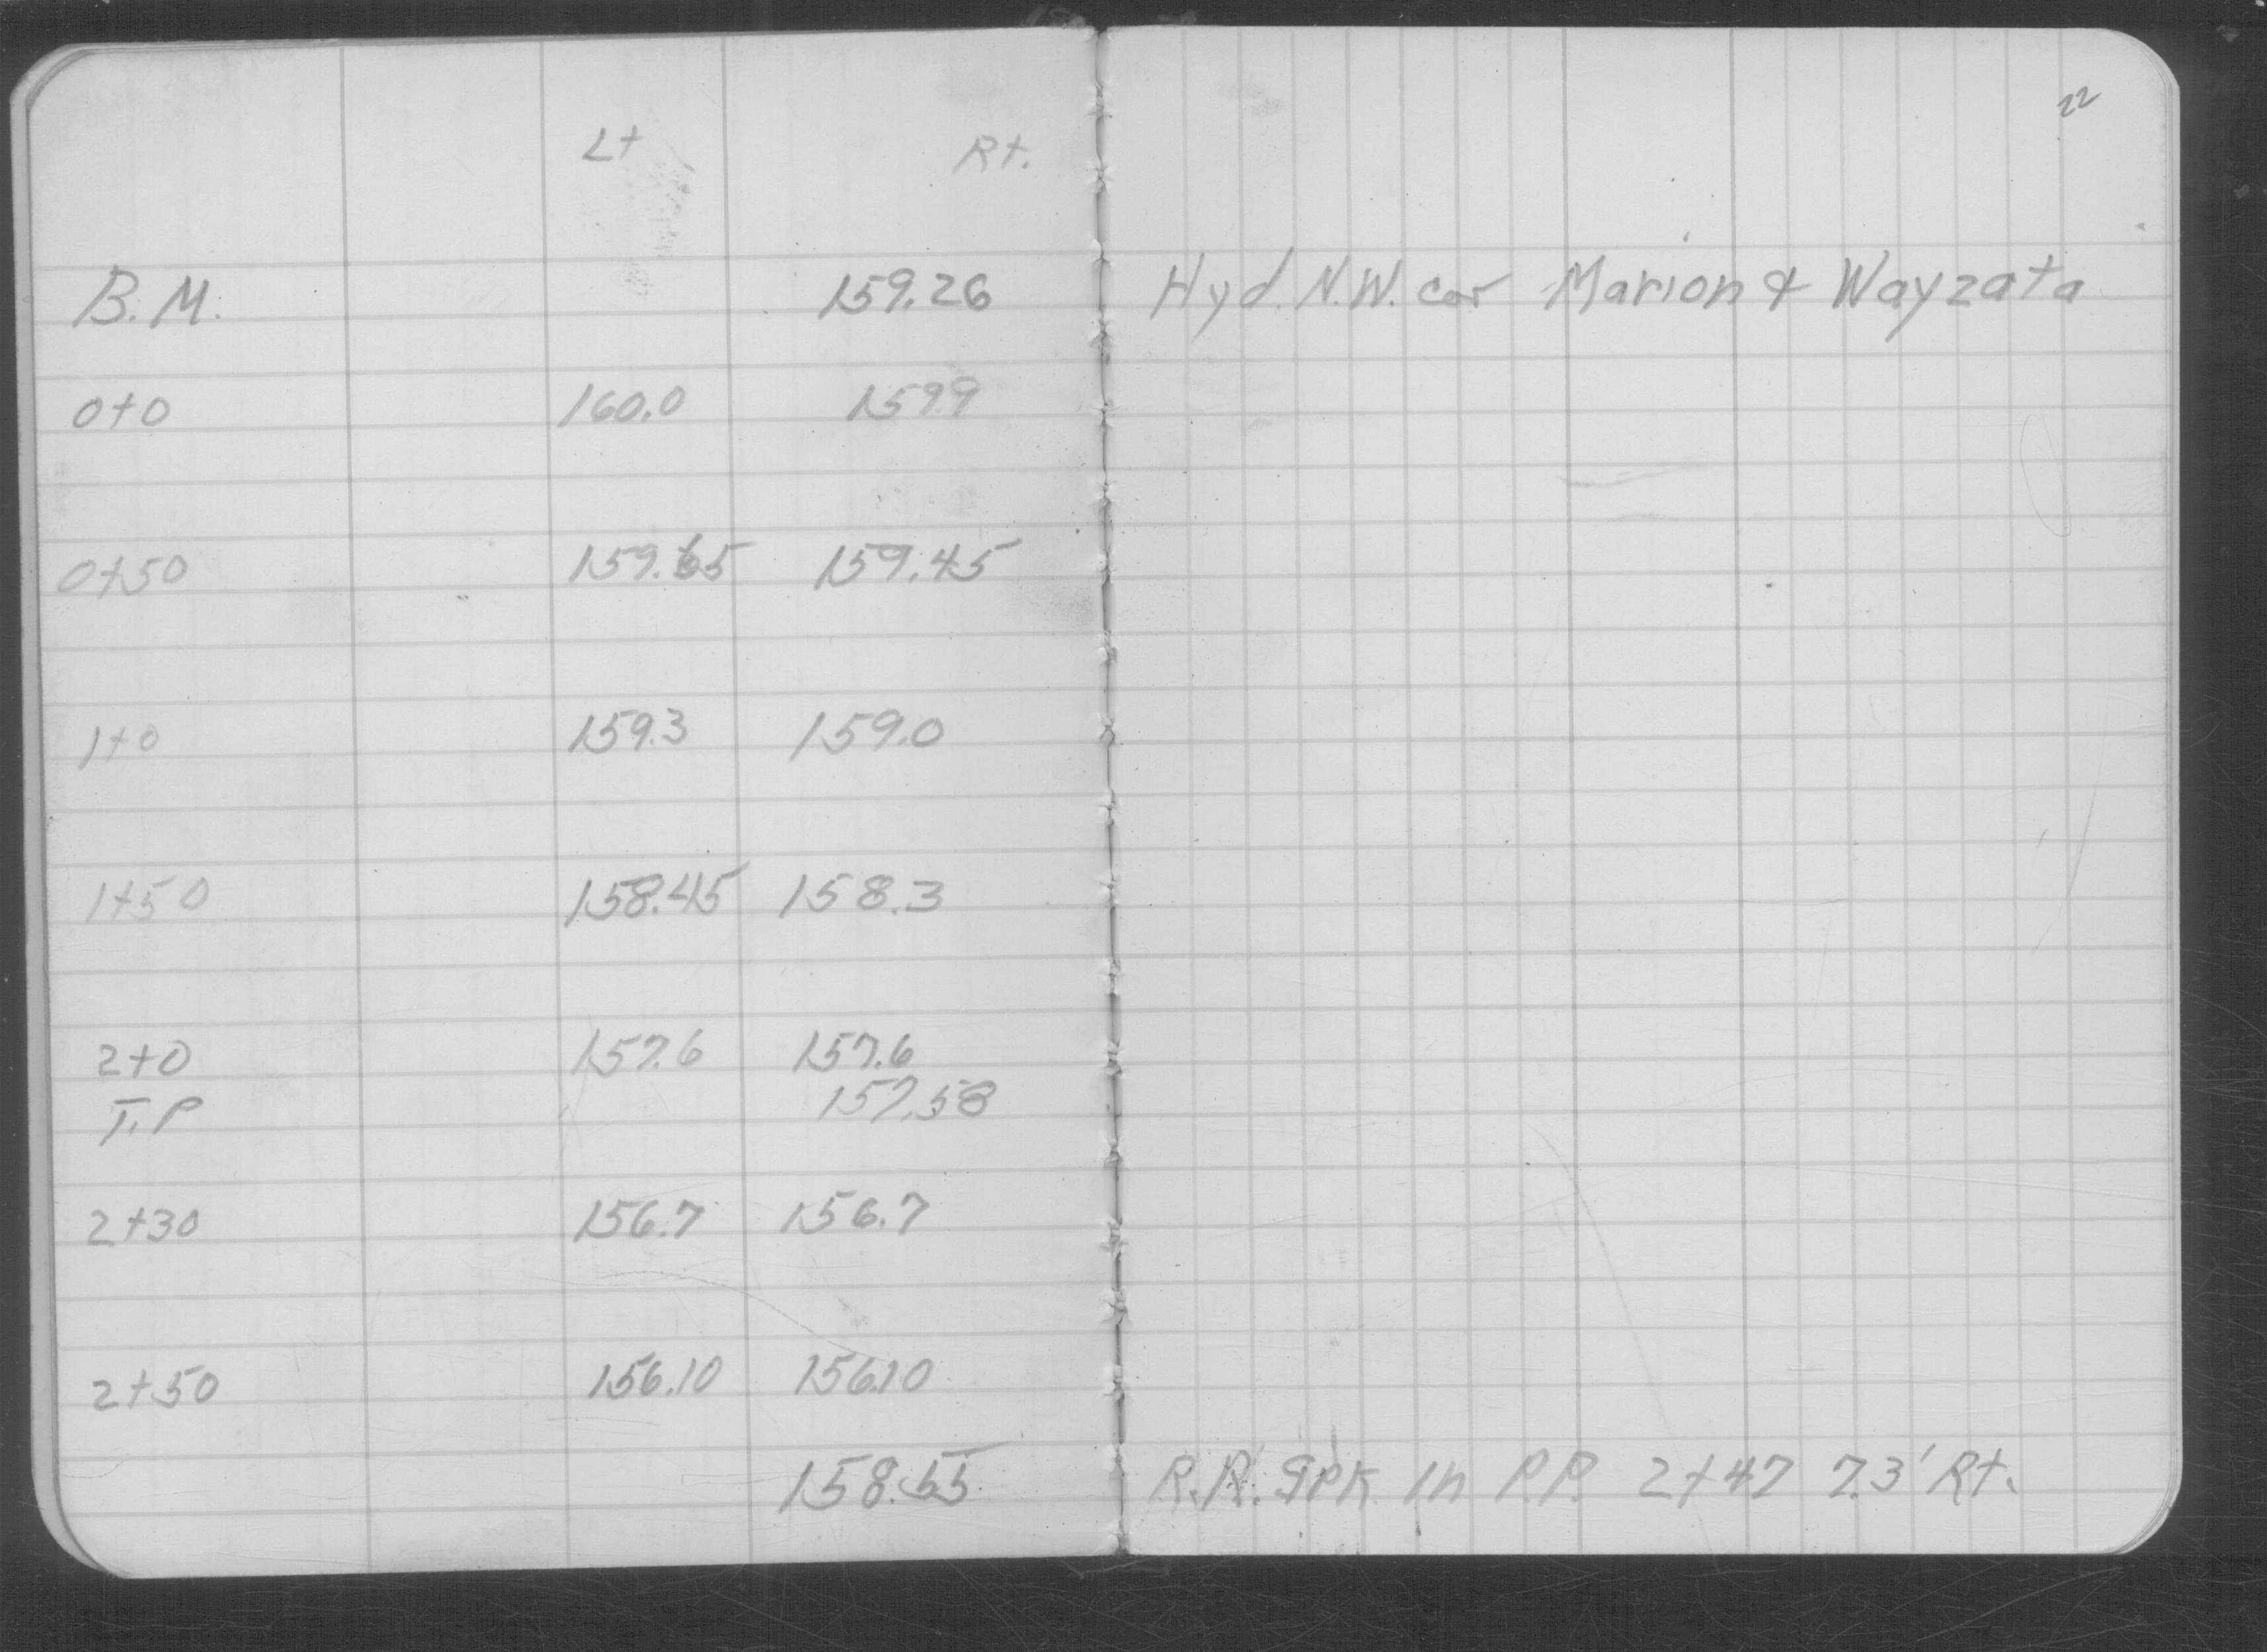 22
Lt Rt.
B.M. 159.26 Hyd. N.W. cor Marion & Wayzata
0+0 160.0 159.9
0+50 159.65 159.45
1+0 159.3 159.0
1+50 158.45 158.3
2+0 157.6 157.6
T.P 157.58
2+30 156.7 156.7
2+50 156.10 156.10
158.55 R.R. Spk in P.P. 2+47 7.3' Rt.